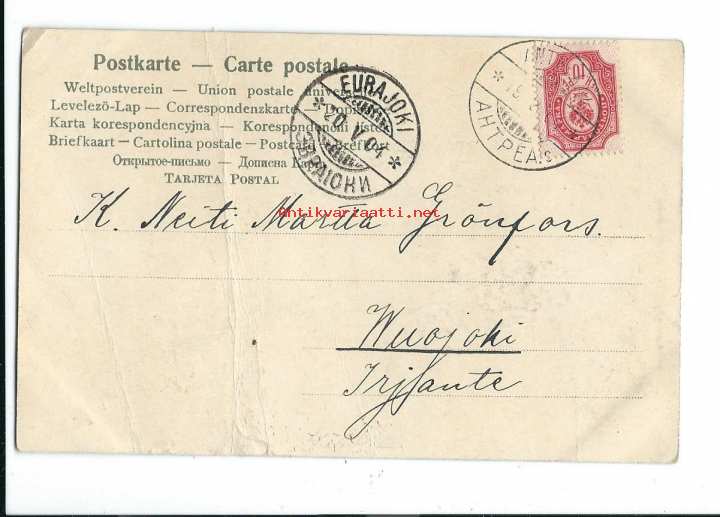 Postkarte — Carte postale
Weltpostverein — Union postale
Levelezö-Lap — Correspondenzkarte —
Karta korespondencyjna — Korespondenční lístek
Briefkaart — Cartolina postale — Postcard — Brefkort
Открытое-письмо — Дописна
TARJETA POSTAL
EURAJOKI
20 V 04
ЭВРАІОКИ
АНТРЕА
10
Antikvariaatti.net
K. Neiti Martta Grönfors.
Wuojoki
Irjante